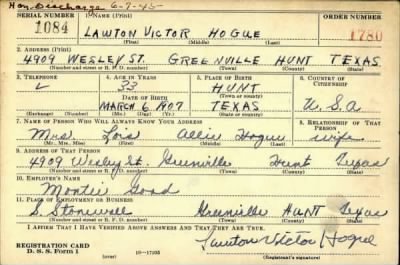 Hon. Discharge 6-7-45
SERIAL NUMBER 1. NAME (Print) ORDER NUMBER
1084 LAWTON VICTOR HOGUE 1780
(First) (Middle) (Last)
2. ADDRESS (Print)
4909 WESLEY ST. GREENVILLE HUNT TEXAS
(Number and street or R. F. D. number) (Town) (County) (State)
3. TELEPHONE 4. AGE IN YEARS 5. PLACE OF BIRTH 6. COUNTRY OF CITIZENSHIP
33 HUNT
DATE OF BIRTH (Town or county)
MARCH 6 1907 TEXAS U.S.A
(Exchange) (Number) (Mo.) (Day) (Yr.) (State or country)
7. NAME OF PERSON WHO WILL ALWAYS KNOW YOUR ADDRESS 8. RELATIONSHIP OF THAT PERSON
Mrs. Lois Allie Hogue wife
(Mr., Mrs., Miss) (First) (Middle) (Last)
9. ADDRESS OF THAT PERSON
4909 Wesley St. Greenville Hunt Texas
(Number and street or R. F. D. number) (Town) (County) (State)
10. EMPLOYER'S NAME
11. PLACE OF EMPLOYMENT OR BUSINESS
S. Stonewall Greenville HUNT Texas
(Number and street or R. F. D. number) (Town) (County) (State)
I AFFIRM THAT I HAVE VERIFIED ABOVE ANSWERS AND THAT THEY ARE TRUE.
Lawton Victor Hogue
REGISTRATION CARD
D. S. S. Form 1 (over) 16-17105 (Registrant's signature)